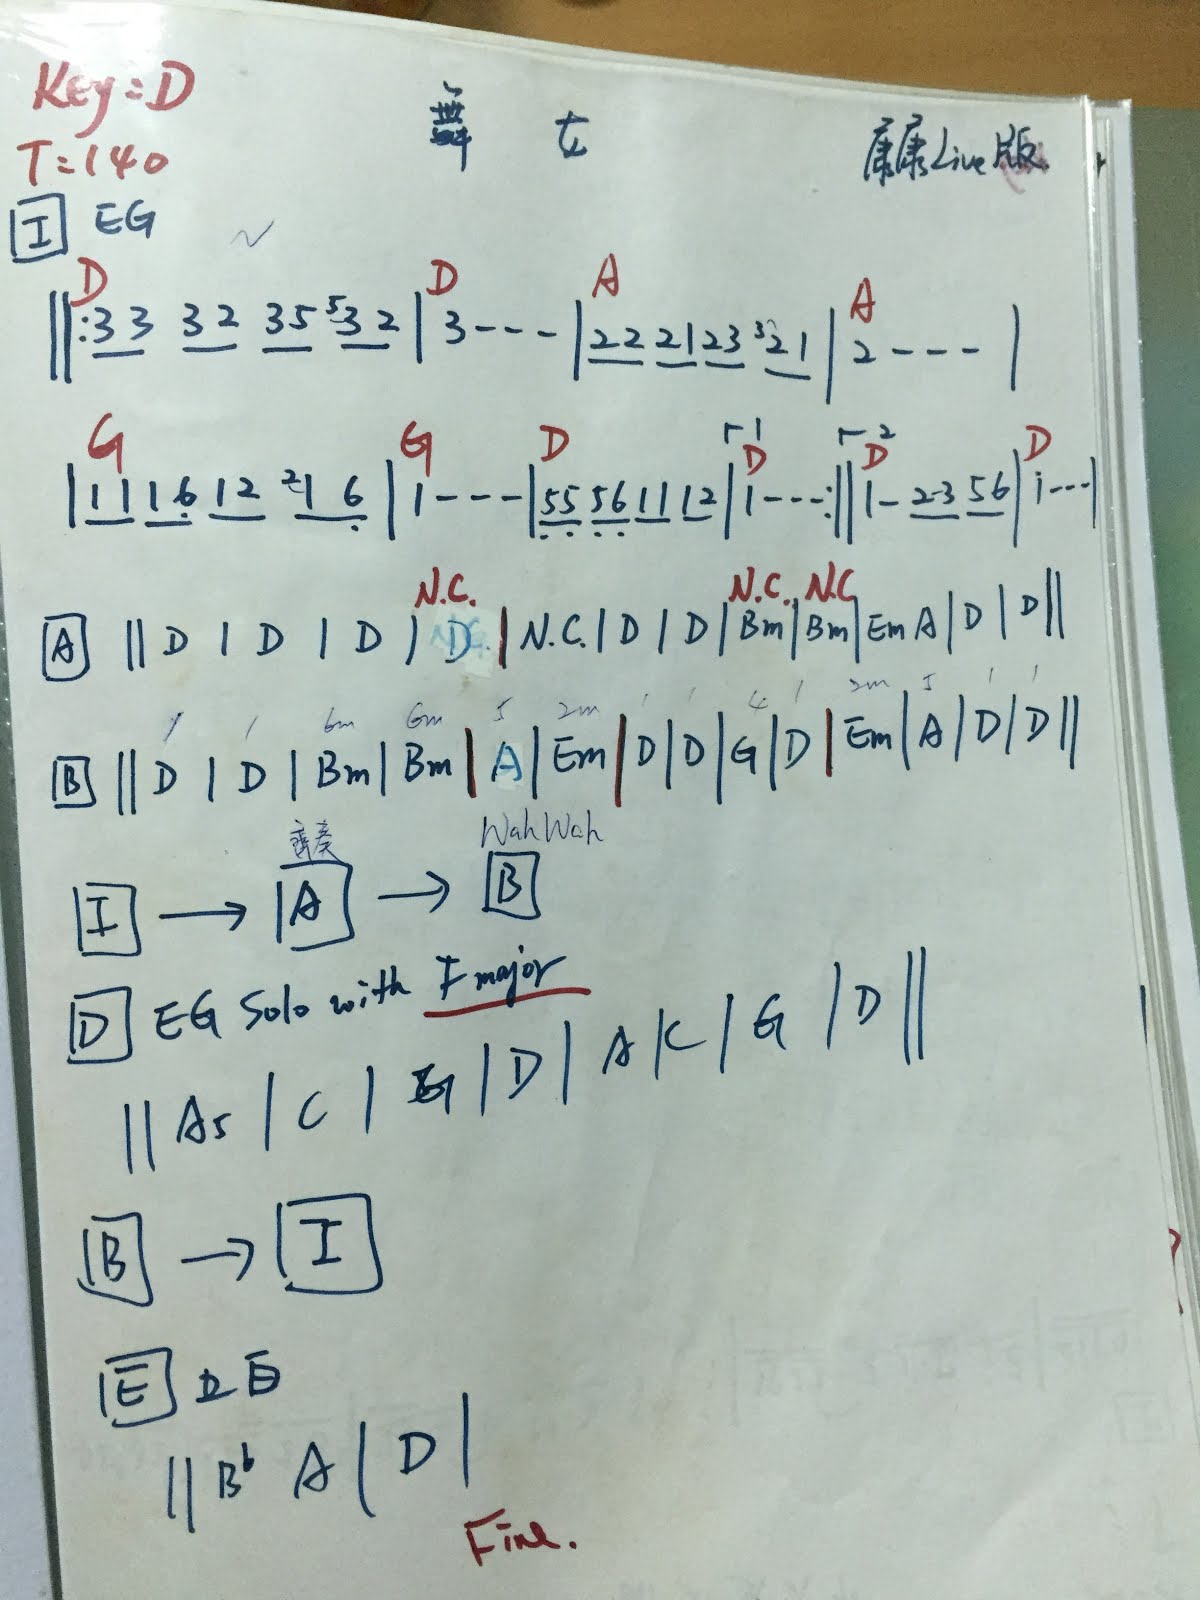 Key=D
T=140
舞 女
康康Live版
I EG
D D A A
‖: 33 32 35 532 | 3--- | 22 21 23 321 | 2---- |
G G D ┌1 D ┌2 D D
| 11 16 12 216 | 1--- | 55 56 11 12 | 1---:‖ 1- 23 56 | i--- |
N.C. N.C. N.C
A ‖ D | D | D | D | N.C. | D | D | Bm | Bm | Em A | D | D ‖
1 1 6m 6m 5 2m 1 1 4 1 2m 5 1 1
B ‖ D | D | Bm | Bm | A | Em | D | D | G | D | Em | A | D | D ‖
齊奏 Wah Wah
I → A → B
D EG Solo with F major
‖ A5 | C | G | D | A | C | G | D ‖
B → I
E
‖ B♭ A | D |
Fine.